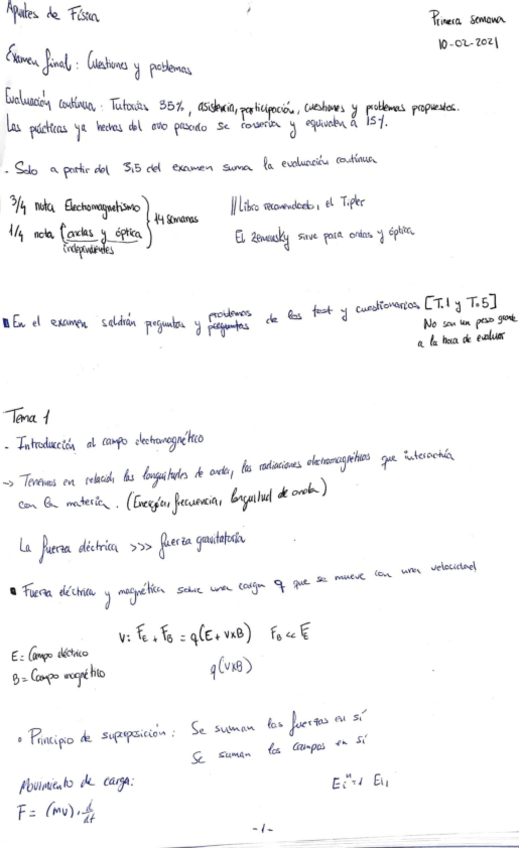 Apuntes de Física
Primera semana
10-02-2021
Examen final: Cuestiones y problemas
Evaluación continua: Tutorías 35%, asistencia, participación, cuestiones y problemas propuestos.
Las prácticas ya hechas del año pasado se conservan y equivalen a 15%.
- Solo a partir del 3,5 del examen suma la evaluación continua
3/4 nota Electromagnetismo
1/4 nota (ondas y óptica)
independientes
14 semanas
// Libro recomendado, el Tipler
El Zemansky sirve para ondas y óptica
En el examen saldrán preguntas y problemas
preguntas
de los test y cuestionarios [T.1 y T.5]
No son un peso grande
a la hora de evaluar
Tema 1
- Introducción al campo electromagnético
-> Tenemos en relación las longitudes de onda, las radiaciones electromagnéticas que interactúa
con la materia. (Energía, frecuencia, longitud de onda)
La fuerza eléctrica >>> fuerza gravitatoria
Fuerza eléctrica y magnética sobre una carga q que se mueve con una velocidad
V: FE + FB = q(E + vxB) FB << FE
E = Campo eléctrico
B = Campo magnético
q(vxB)
• Principio de superposición: Se suman las fuerzas en sí
Se suman los campos en sí
Movimiento de carga:
F = (mv) · d/dt
-1-